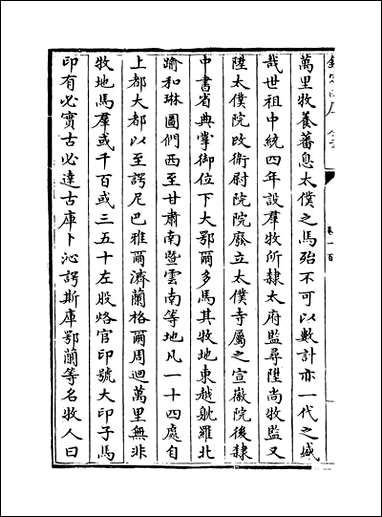 萬里牧養蕃息太僕之馬殆不可以數計亦一代之盛
哉世祖中統四年設羣牧所隸太府監尋陞尚牧監又
陞太僕院改衛尉院院廢立太僕寺屬之宣徽院後隸
中書省典掌御位下大鄂爾多馬其牧地東越躭羅北
踰和琳圖們西至甘肅南暨雲南等地凡一十四處自
上都大都以至諤尼巴雅爾濟蘭格爾周迴萬里無非
牧地馬羣或千百或三五十左股烙官印號大印子馬
印有必實古必達古庫卜沁諤斯庫鄂蘭等名牧人曰